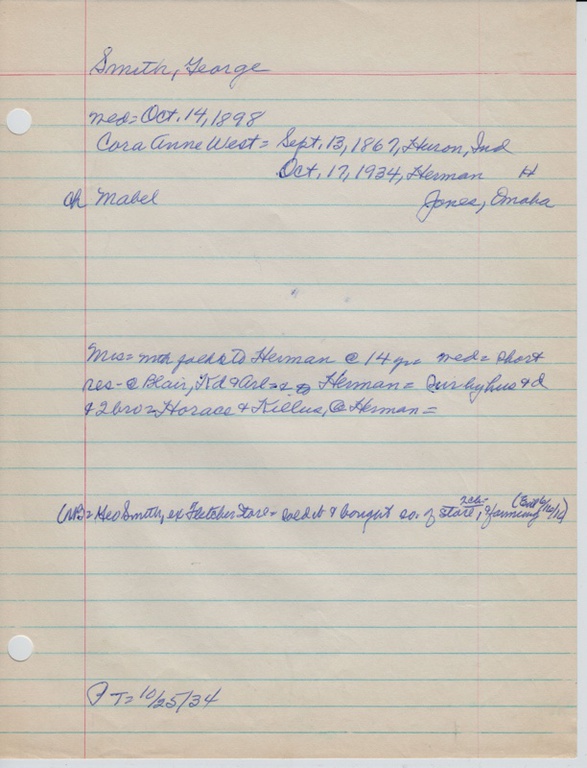 Smith, George
med = Oct. 14, 1898
Cora Anne West = Sept. 13, 1867, Huron, Ind
Oct. 17, 1934, Herman H
ch Mabel Jones, Omaha
Mrs = to Herman @ 14 yr med = short
res - @ Blair, & = Herman = Sur by hus & d
& 2 bro = Horace & @ Herman =
(NB = Geo Smith, ex Fletcher Store = sold it & bought so. of store, & farming
PT = 10/25/34